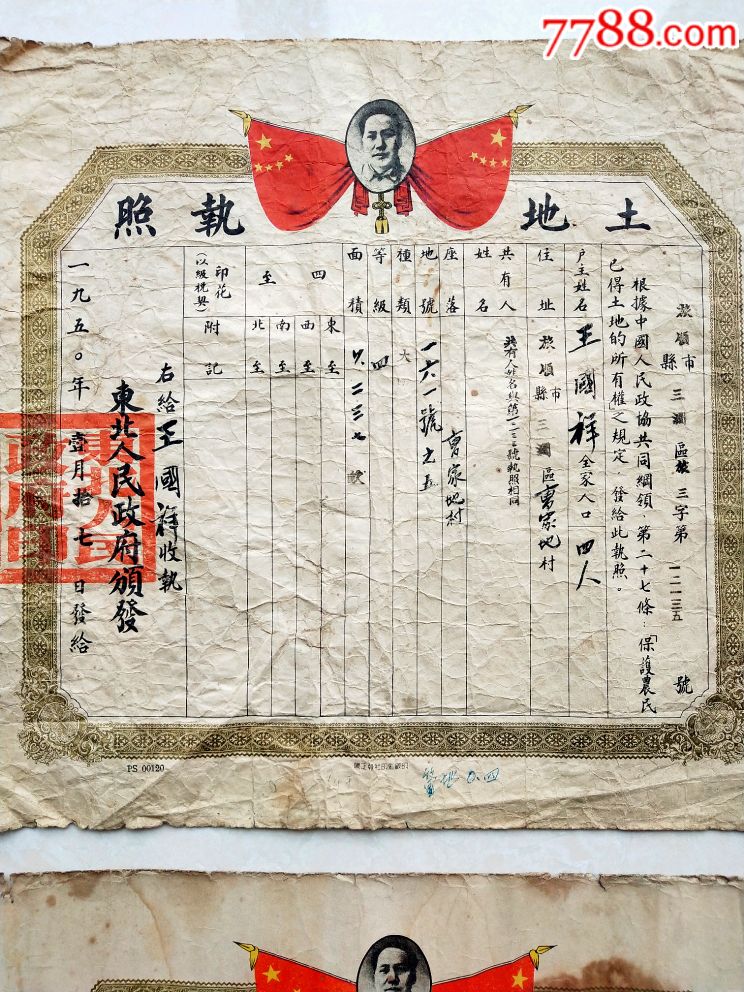 7788.com
土地執照
旅順市縣三澗區 三字第一二一三五號
根據中國人民政協共同綱領,第二十七條:「保護農民
已得土地的所有權」之規定,發給此執照。
戶主姓名 王國祥 全家人口 四人
住址 旅順市縣三澗區曹家地村
共有人姓名 共有人姓名與第一二一三三號執照相同
座落 曹家地村
地號 一六一號之五
種類 大
等級 四
面積 〇.六二三七畝
四至
東至
西至
南至
北至
印花
附記
右給王國祥收執
東北人民政府頒發
一九五〇年壹月拾七日發給
PS 00120
0.四